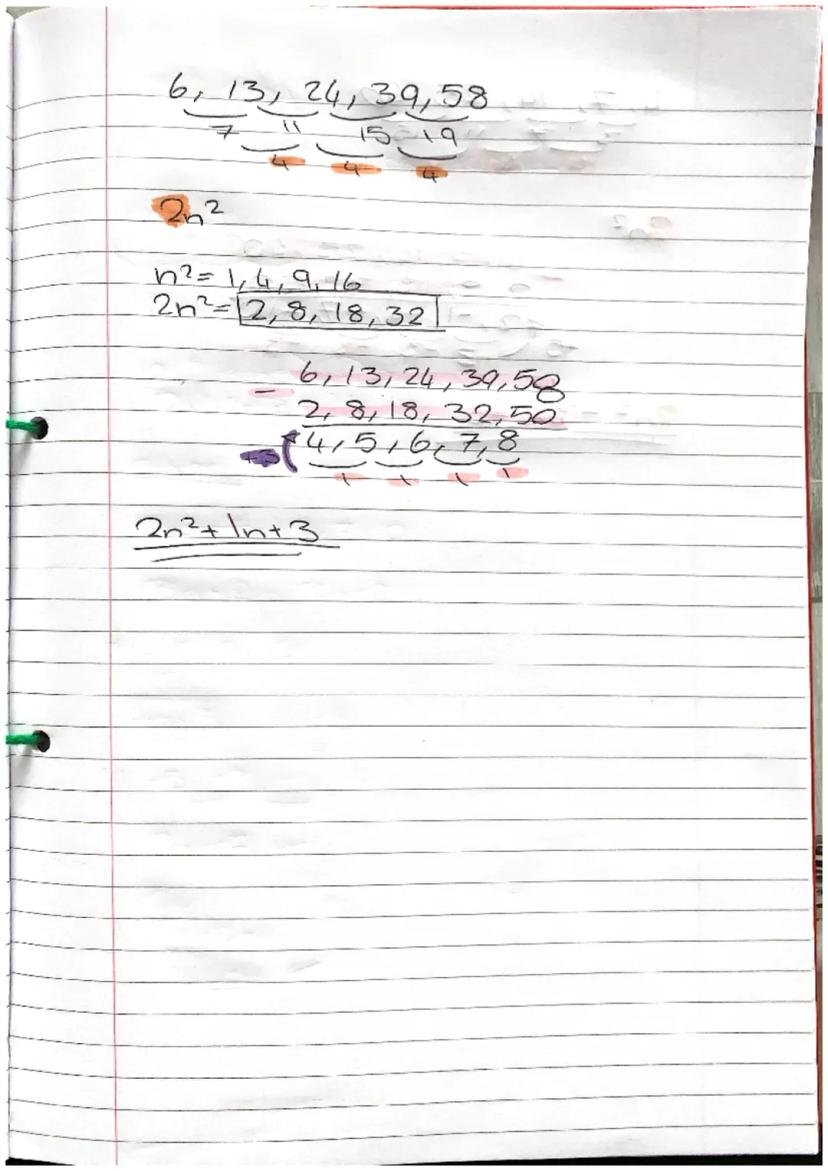 6, 13, 24, 39, 58
7 11 15 19
4 4 4
2n²
n² = 1, 4, 9, 16
2n² = 2, 8, 18, 32
- 6, 13, 24, 39, 58
2, 8, 18, 32, 50
+3 4, 5, 6, 7, 8
1 1 1 1
2n² + 1n + 3